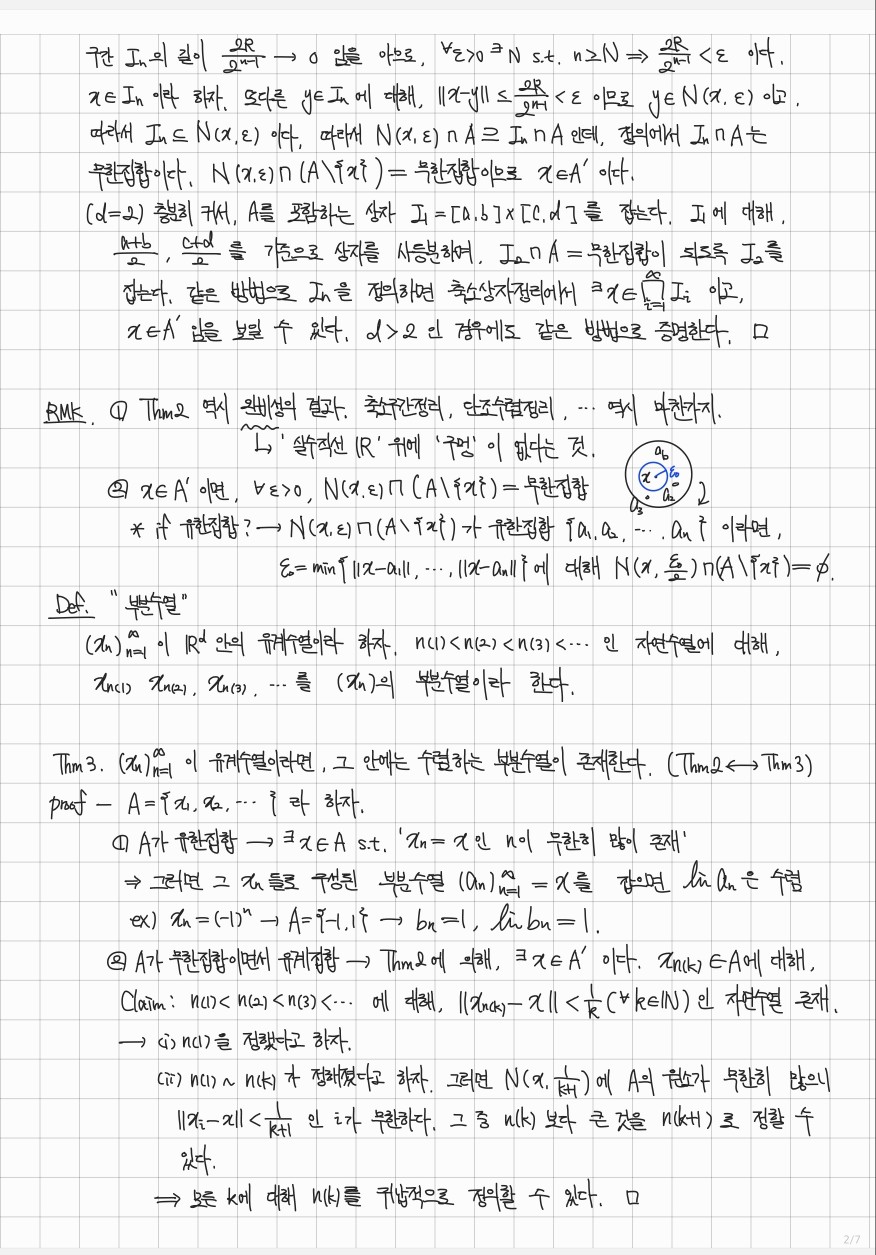 구간 Iₙ의 길이 2R/2ⁿ⁻¹ → 0 임을 아므로, ∀ε>0 ∃N s.t. n≥N ⇒ 2R/2ⁿ⁻¹ < ε 이다.
x∈Iₙ 이라 하자. 또다른 y∈Iₙ 에 대해, ||x-y|| ≤ 2R/2ⁿ⁻¹ < ε 이므로 y∈N(x, ε) 이고,
따라서 Iₙ ⊂ N(x,ε) 이다. 따라서 N(x,ε)∩A ⊇ Iₙ∩A 인데, 정의에서 Iₙ∩A는
무한집합이다. N(x,ε)∩(A\{x}) = 무한집합이므로 x∈A′ 이다.
(d=2) 충분히 커서, A를 포함하는 상자 I₁=[a,b]×[c,d]를 잡는다. I₁에 대해,
a+b/2, c+d/2 를 기준으로 상자를 사등분하며, I₂∩A = 무한집합이 되도록 I₂를
잡는다. 같은 방법으로 Iₙ을 정의하면 축소상자정리에서 ∃x∈ ∞∩i=1 Iᵢ 이고,
x∈A′ 임을 보일 수 있다. d>2 인 경우에도 같은 방법으로 증명한다. □
RMK. ① Thm2 역시 완비성의 결과. 축소구간정리, 단조수렴정리, ⋯ 역시 마찬가지.
↳ '실수직선 ℝ' 위에 '구멍'이 없다는 것.
② x∈A′ 이면, ∀ε>0, N(x,ε)∩(A\{x}) = 무한집합
a₆ x ε₀ a₂ a₃
* if 유한집합? → N(x,ε)∩(A\{x})가 유한집합 {a₁,a₂, ⋯, aₙ} 이라면,
ε₀=min{||x-a₁||, ⋯, ||x-aₙ||}에 대해 N(x, ε₀/2)∩(A\{x})=∅.
Def. "부분수열"
(xₙ)∞n=1 이 ℝᵈ 안의 유계수열이라 하자. n(1)<n(2)<n(3)<⋯ 인 자연수열에 대해,
xn(1) xn(2), xn(3), ⋯ 를 (xₙ)의 부분수열이라 한다.
Thm3. (xₙ)∞n=1 이 유계수열이라면, 그 안에는 수렴하는 부분수열이 존재한다. (Thm2↔Thm3)
proof – A={x₁, x₂, ⋯ } 라 하자.
① A가 유한집합 → ∃x∈A s.t. 'xₙ=x 인 n이 무한히 많이 존재'
⇒ 그러면 그 xₙ 들로 구성된 부분수열 (aₙ)∞n=1 = x를 잡으면 lim aₙ은 수렴
ex) xₙ=(-1)ⁿ → A={-1,1} → bₙ=1, lim bₙ=1.
② A가 무한집합이면서 유계집합 → Thm2에 의해, ∃x∈A′ 이다. xn(k)∈A에 대해,
Claim: n(1)<n(2)<n(3)<⋯ 에 대해, ||xn(k)-x|| < 1/k (∀k∈ℕ) 인 자연수열 존재.
→ (i) n(1)을 정했다고 하자.
(ii) n(1) ~ n(k)가 정해졌다고 하자. 그러면 N(x, 1/k+1)에 A의 원소가 무한히 많으니
||xᵢ-x|| < 1/k+1 인 i가 무한하다. 그 중 n(k) 보다 큰 것을 n(k+1)로 정할 수
있다.
⇒ 모든 k에 대해 n(k)를 귀납적으로 정의할 수 있다. □
2/7